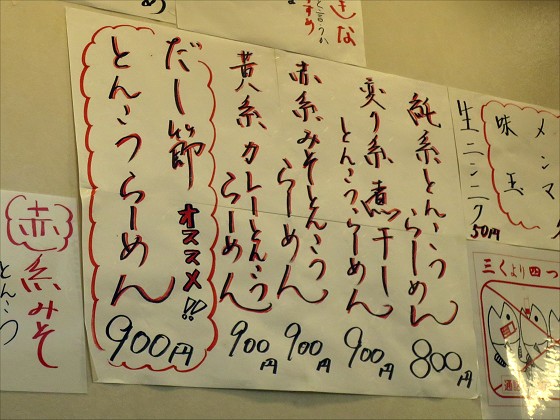 メンマ
味玉
生ニンニク
50円
三くより四つ
純系とんこつ
らーめん
800円
変り系煮干し
とんこつらーめん
900円
赤系みそとんこつ
らーめん
900円
黄系カレーとんこつ
らーめん
900円
だし節
オススメ!!
とんこつらーめん
900円
赤
糸みそ
とんこつ